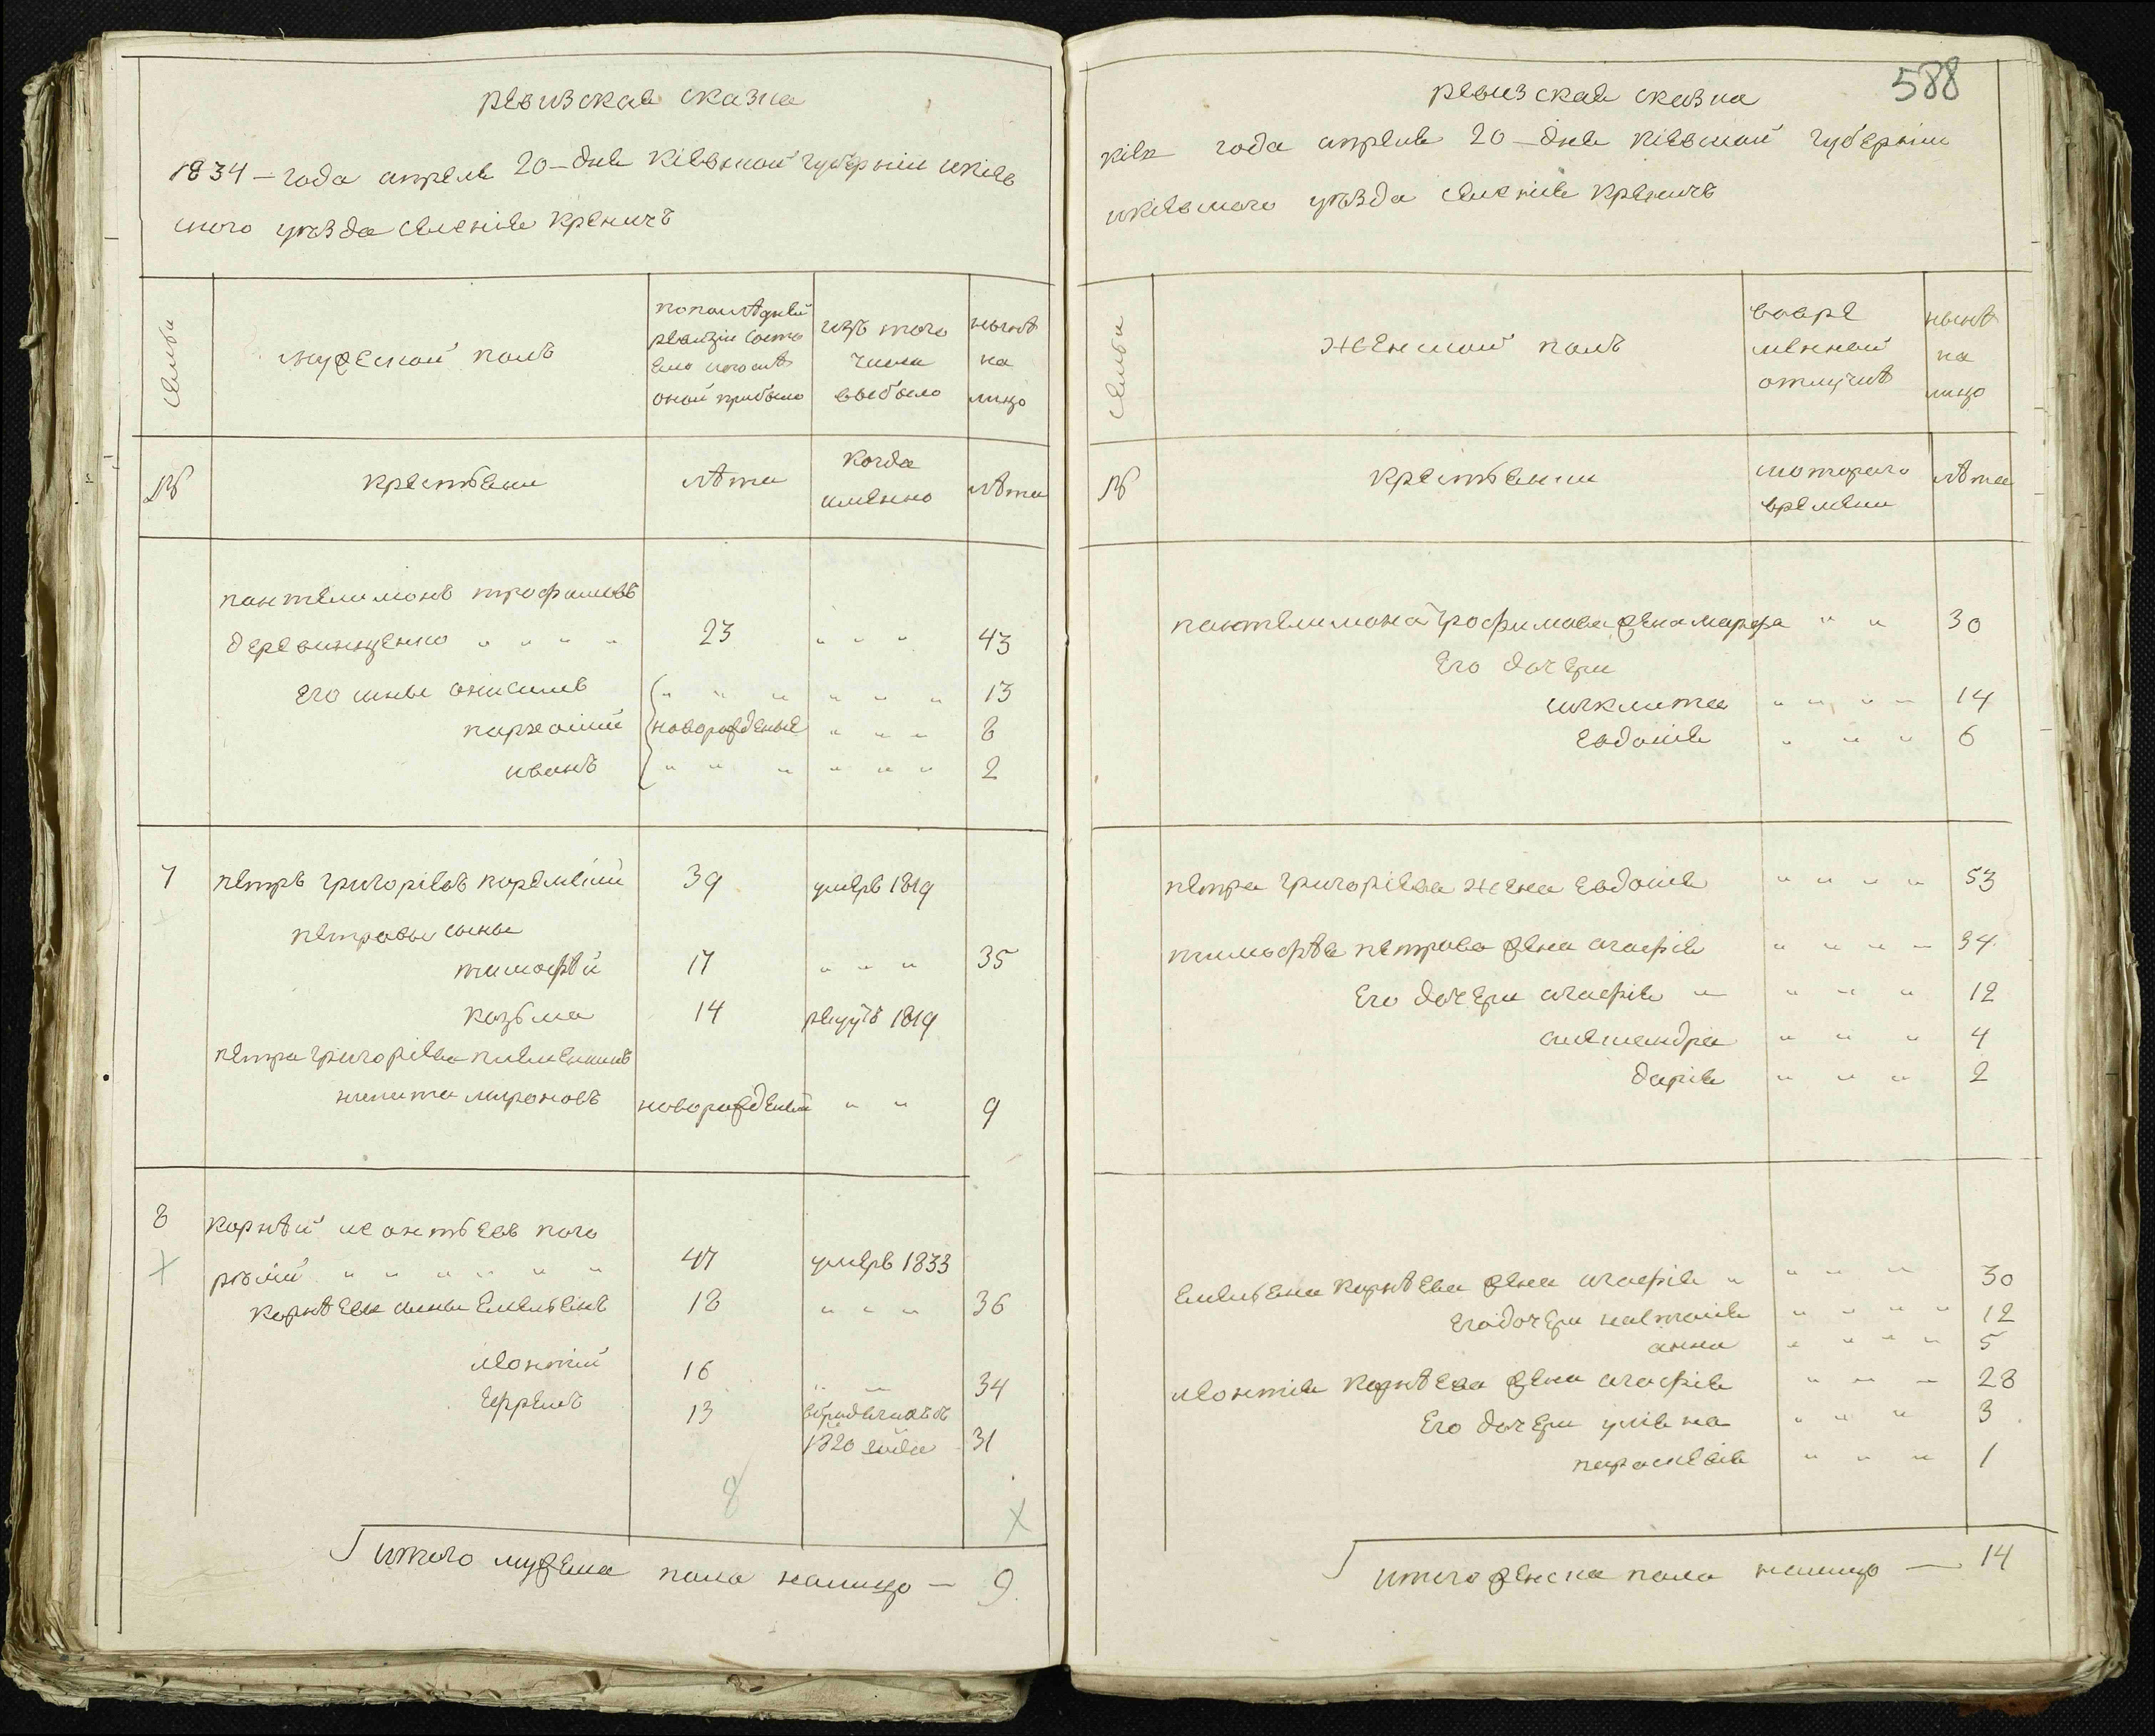 ревизская сказка
1834 – года апреля 20 – дня Кіевской губерніи и Кіев
ского уѣзда селеніе Креничъ
семьи
мужеской полъ
по послѣдней
ревизіи состо
яло и послѣ
оной прибыло
изъ того
числа
выбыло
нынѣ
на
лицо
№
крестьяни
лѣта
когда
именно
лѣта
пантелимонъ трофимовъ
деревинщенко " " " " 23 " " " 43
Его сыны онисимъ " " " " " " 13
пархомій новорожденые " " " 8
иванъ " " " " " " 2
7 петръ григоріевъ 39 умеръ 1819
петровы сыны
тимофѣй 17 " " " 35
козьма 14 рекрутъ 1819
петра григоріева племенникъ
никита мироновъ новорожденый " " 9
8 корнѣй леонтьевъ пого
рѣлій " " " " " " 47 умеръ 1833
корнѣевы сыны Емельянъ 18 " " " 36
леонтій 16 " " 34
Ефремъ 13 въ бродягахъ съ
1820 года 31
8
итого мужеска пола налицо – 9
588
ревизская сказка
года апреля 20 – дня Кіевской губерніи
и Кіевского уѣзда селеніе Креничъ
семьи
женской полъ
во вре
менной
отлучкѣ
нынѣ
на
лицо
№
крестьянки
с которого
времени
лѣта
пантелимона трофимова жена марфа " " 30
Его дочери
" " " " 14
Евдокія " " " 6
петра григоріева жена Евдокія " " " " 53
тимофѣя петрова жена агафія " " " " 34
Его дочери агафія " " " " 12
александра " " " 4
дарія " " " 2
Емельяна корнѣева жена агафія " " " " 30
Его дочери настасія " " " " 12
анна " " " " 5
леонтія корнѣева жена агафія " " " 28
Его дочери уліяна " " " 3
параскевія " " " 1
итого женска пола налицо — 14